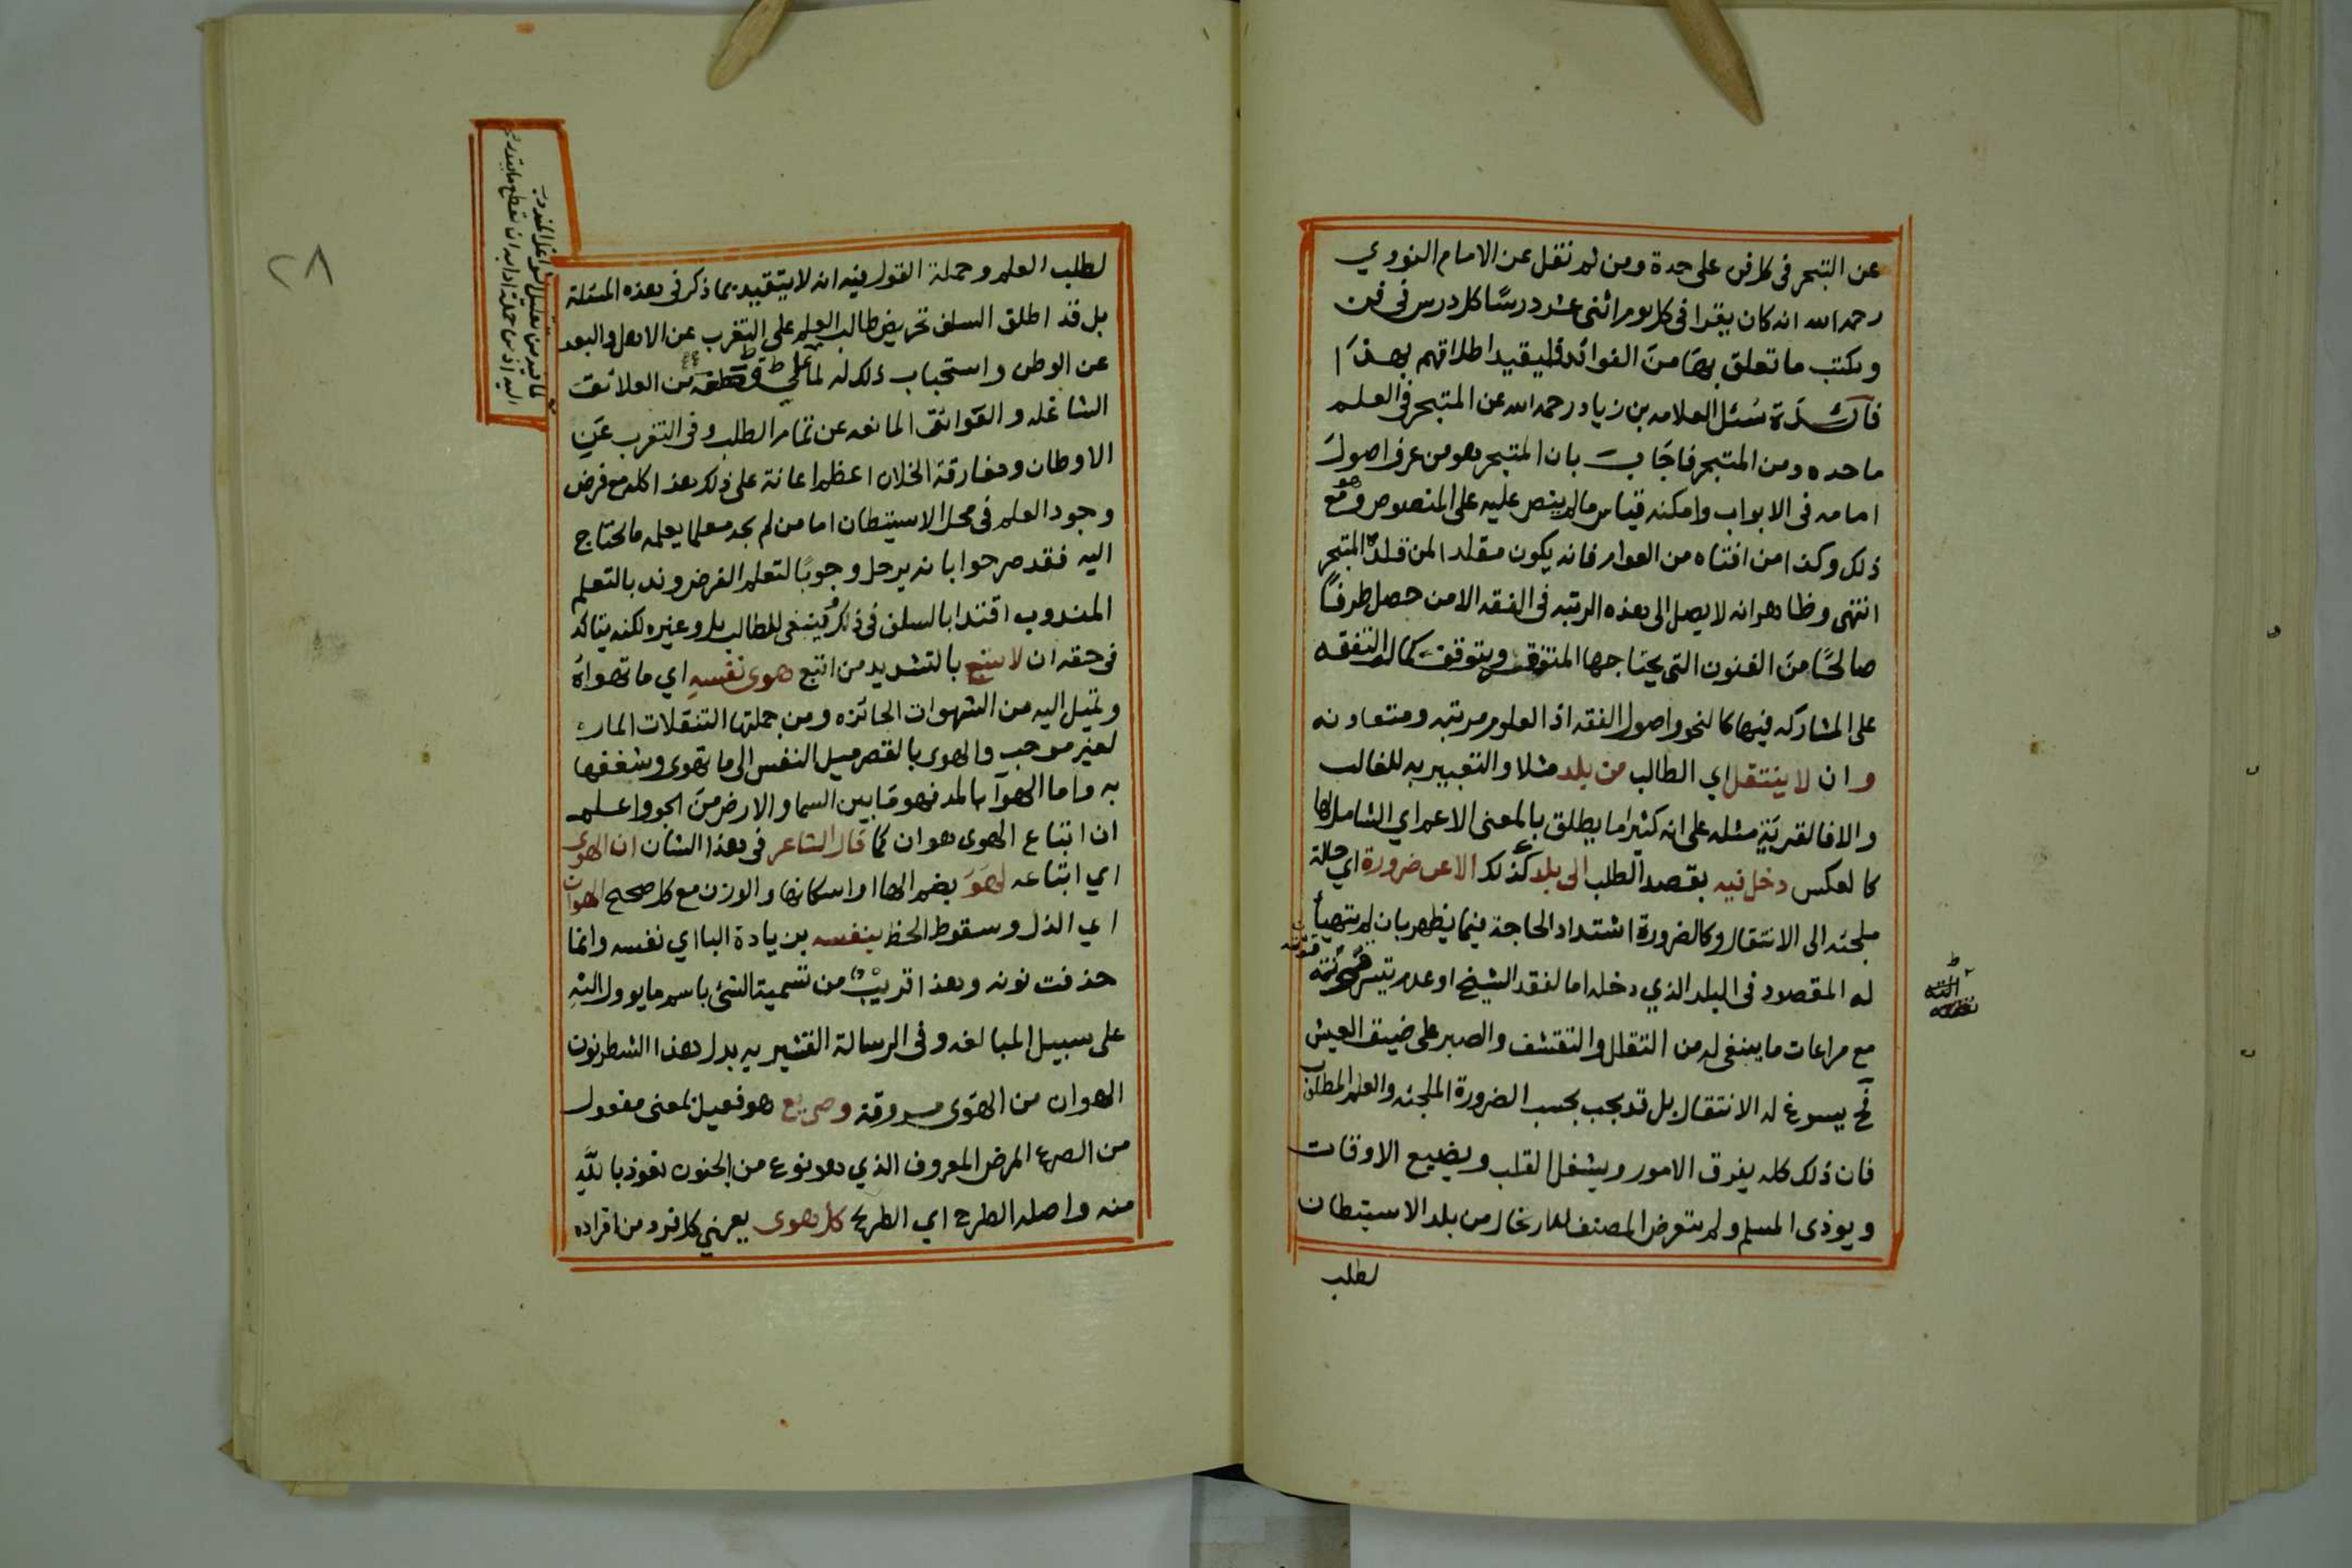 عن التبحر فى كل فن على حدة ومن لم نقل عن الامام النووي
رحمه الله انه كان يقرا فى كل يوم اثنى عشر درسًا كل درس فى فن
ويكتب ما تعلق بها من الفوائد فليقيد اطلاقهم بهذا
فائدة سئل العلامه بن زياد رحمه الله عن المتبحر فى العلم
ما حده ومن المتبحر فاجاب بان المتبحر هو من عرف اصول
امامه فى الابواب وامكنه قياس ما لم ينص عليه على المنصوص وهو مع
ذلك وكذا من افتاه من العوام فانه يكون مقلدا لمن قلده المتبحر
انتهى وظاهر انه لا يصل الى هذه الرتبه فى الفقه الا من حصل طرفًا
صالحًا من الفنون التى يحتاجها المتفقه ويتوقف كمال التفقه
على المشاركه فيها كالنحو واصول الفقه اذ العلوم مرتبه ومتعاونه
وان لا ينتقل اي الطالب من بلد مثلا والتعبير به للغالب
والا فالقرية مثله على انه كثيرا ما يطلق بالمعنى الاعم اي الشامل لها
كالعكس دخل فيه بقصد الطلب الى بلد كذلك الا عن ضرورة اي حالة
ملجئه الى الانتقال وكالضرورة اشتداد الحاجة فيما يظهر بان لم يتهيأ
له المقصود فى البلد الذي دخله اما لفقد الشيخ او عدم تيسر مؤنته
مع مراعات ما ينبغى له من التقلل والتقشف والصبر على ضيق العيش
فح يسوغ له الانتقال بل قد يجب بحسب الضرورة الملجئه والعلم المطلوب
فان ذلك كله يفرق الامور ويشغل القلب ويضيع الاوقات
ويوذى المسلم ولم يتعرض المصنف للارتحال من بلد الاستيطان
لطلب
٢٨
لطلب العلم وحملة القول فيه انه لا يتقيد بما ذكر فى هذه المسئلة
بل قد اطلق السلف تحريض طالب العلم على التغرب عن الاهل والبعد
عن الوطن واستحباب ذلك له لما على من العلائق
الشاغله والعوائق المانعه عن تمام الطلب وفى التغرب عن
الاوطان ومفارقة الخلان اعظم اعانة على ذلك هذا كله مع فرض
وجود العلم فى محل الاستيطان اما من لم يجد معلما يعلمه ما يحتاج
اليه فقد صرحوا بانه يرحل وجوبًا لتعلم الفرض وندبا لتعلم
المندوب اقتدا بالسلف فى ذلك فينبغى للطالب بل وغيره لكنه يتاكد
فى حقه ان لا يتبع بالتشديد من اتبع هوى نفسه اي ما تهواه
وتميل اليه من الشهوات الجائزه ومن جملتها التنقلات الماره
لغير موجب والهوى بالقصر ميل النفس الى ما تهوى وشغفها
به واما الهوآ بالمد فهو ما بين السما والارض من الجو واعلم
ان اتباع الهوى هوان كما قال الشاعر فى هذا الشان ان الهوى
اي اتباعه لهو بضم الها او اسكانها والوزن مع كل صحيح الهوان
اي الذل وسقوط الحظ بنفسه بزيادة البا اي نفسه وانما
حذفت نونه وهذا قريب من تسمية الشئ باسم ما يوول اليه
على سبيل المبالغه وفى الرسالة القشيريه بدل هذا الشطر نون
الهوان من الهوى مسروقة وصريع هو فعيل بمعنى مفعول
من الصرع المرض المعروف الذي هو نوع من الجنون نعوذ بالله
منه واصله الطرح اي الطريح كل هوى يعرني كل فرد من افراده